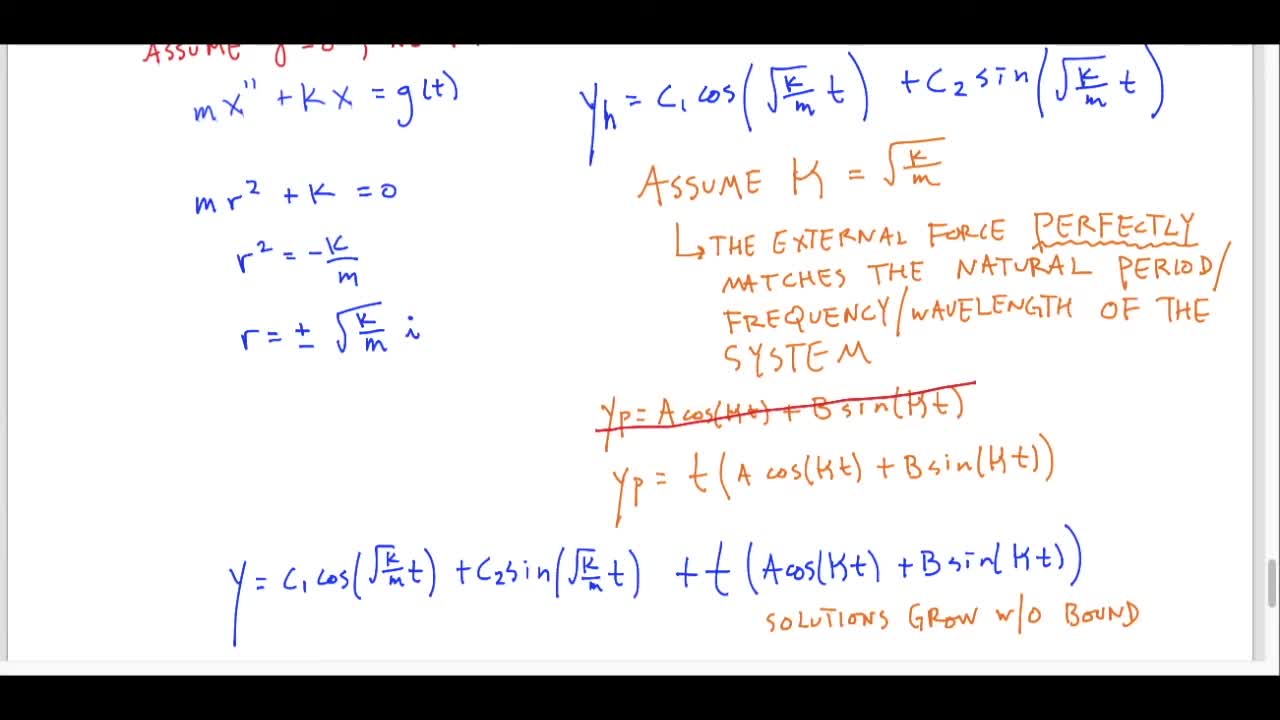 ASSUME
mx'' + kx = g(t)
mr² + k = 0
r² = -k/m
r = ± √(k/m) i
y_h = c₁ cos(√(k/m) t) + c₂ sin(√(k/m) t)
ASSUME K = √(k/m)
↳ THE EXTERNAL FORCE PERFECTLY
MATCHES THE NATURAL PERIOD/
FREQUENCY/WAVELENGTH OF THE
SYSTEM
y_p = A cos(Kt) + B sin(Kt)
y_p = t(A cos(Kt) + B sin(Kt))
y = c₁ cos(√(k/m) t) + c₂ sin(√(k/m) t) + t(A cos(Kt) + B sin(Kt))
SOLUTIONS GROW W/O BOUND